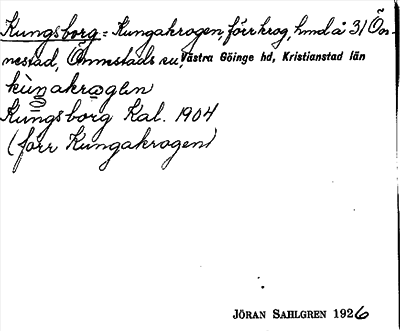 Kungsborg = Kungakrogen, förr krog, hmd å 31 Ön-
nestad, Önnestads sn, Västra Göinge hd, Kristianstad län
Kungsborg Kal. 1904
(förr Kungakrogen)
JÖRAN SAHLGREN 1926